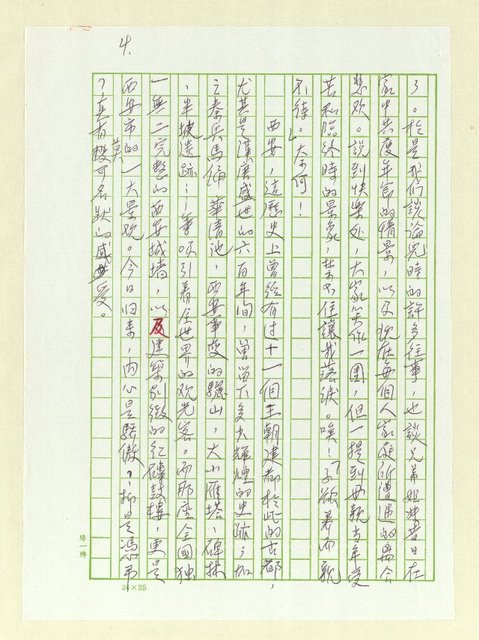 4.
了。於是那们談論兒時的許多往事，也談兄弟姐妹昔日在
家中共度年節的情景，以及現在每個人家庭所遭遇的離合
悲欢。說到快樂处，大家笑作一團，但一提到母親当年受
苦和臨終時的景象，禁不住讓我落淚。唉！「子欲养而親
不待。」大奈何！
西安，這歷史上曾經有过十一個王朝建都於此的古都，
尤其是漢唐盛世的六百年间，留下多少輝煌的史跡，如
之秦兵馬俑，華清池，西安事变的驪山，大小雁塔，碑林
，半坡遺跡⋯⋯等吸引着全世界的观光客。而那座全國独
一無二完整的西安城墙，以及建築别緻的红磚鼓樓，更是
西安市的一大景观。今日归来，内心是驕傲？抑是憑弔
？真有莫可名狀的感受。
24×25